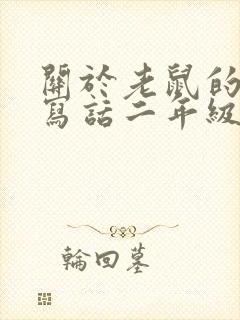 關於老鼠的
寫話二年級
輪回墓